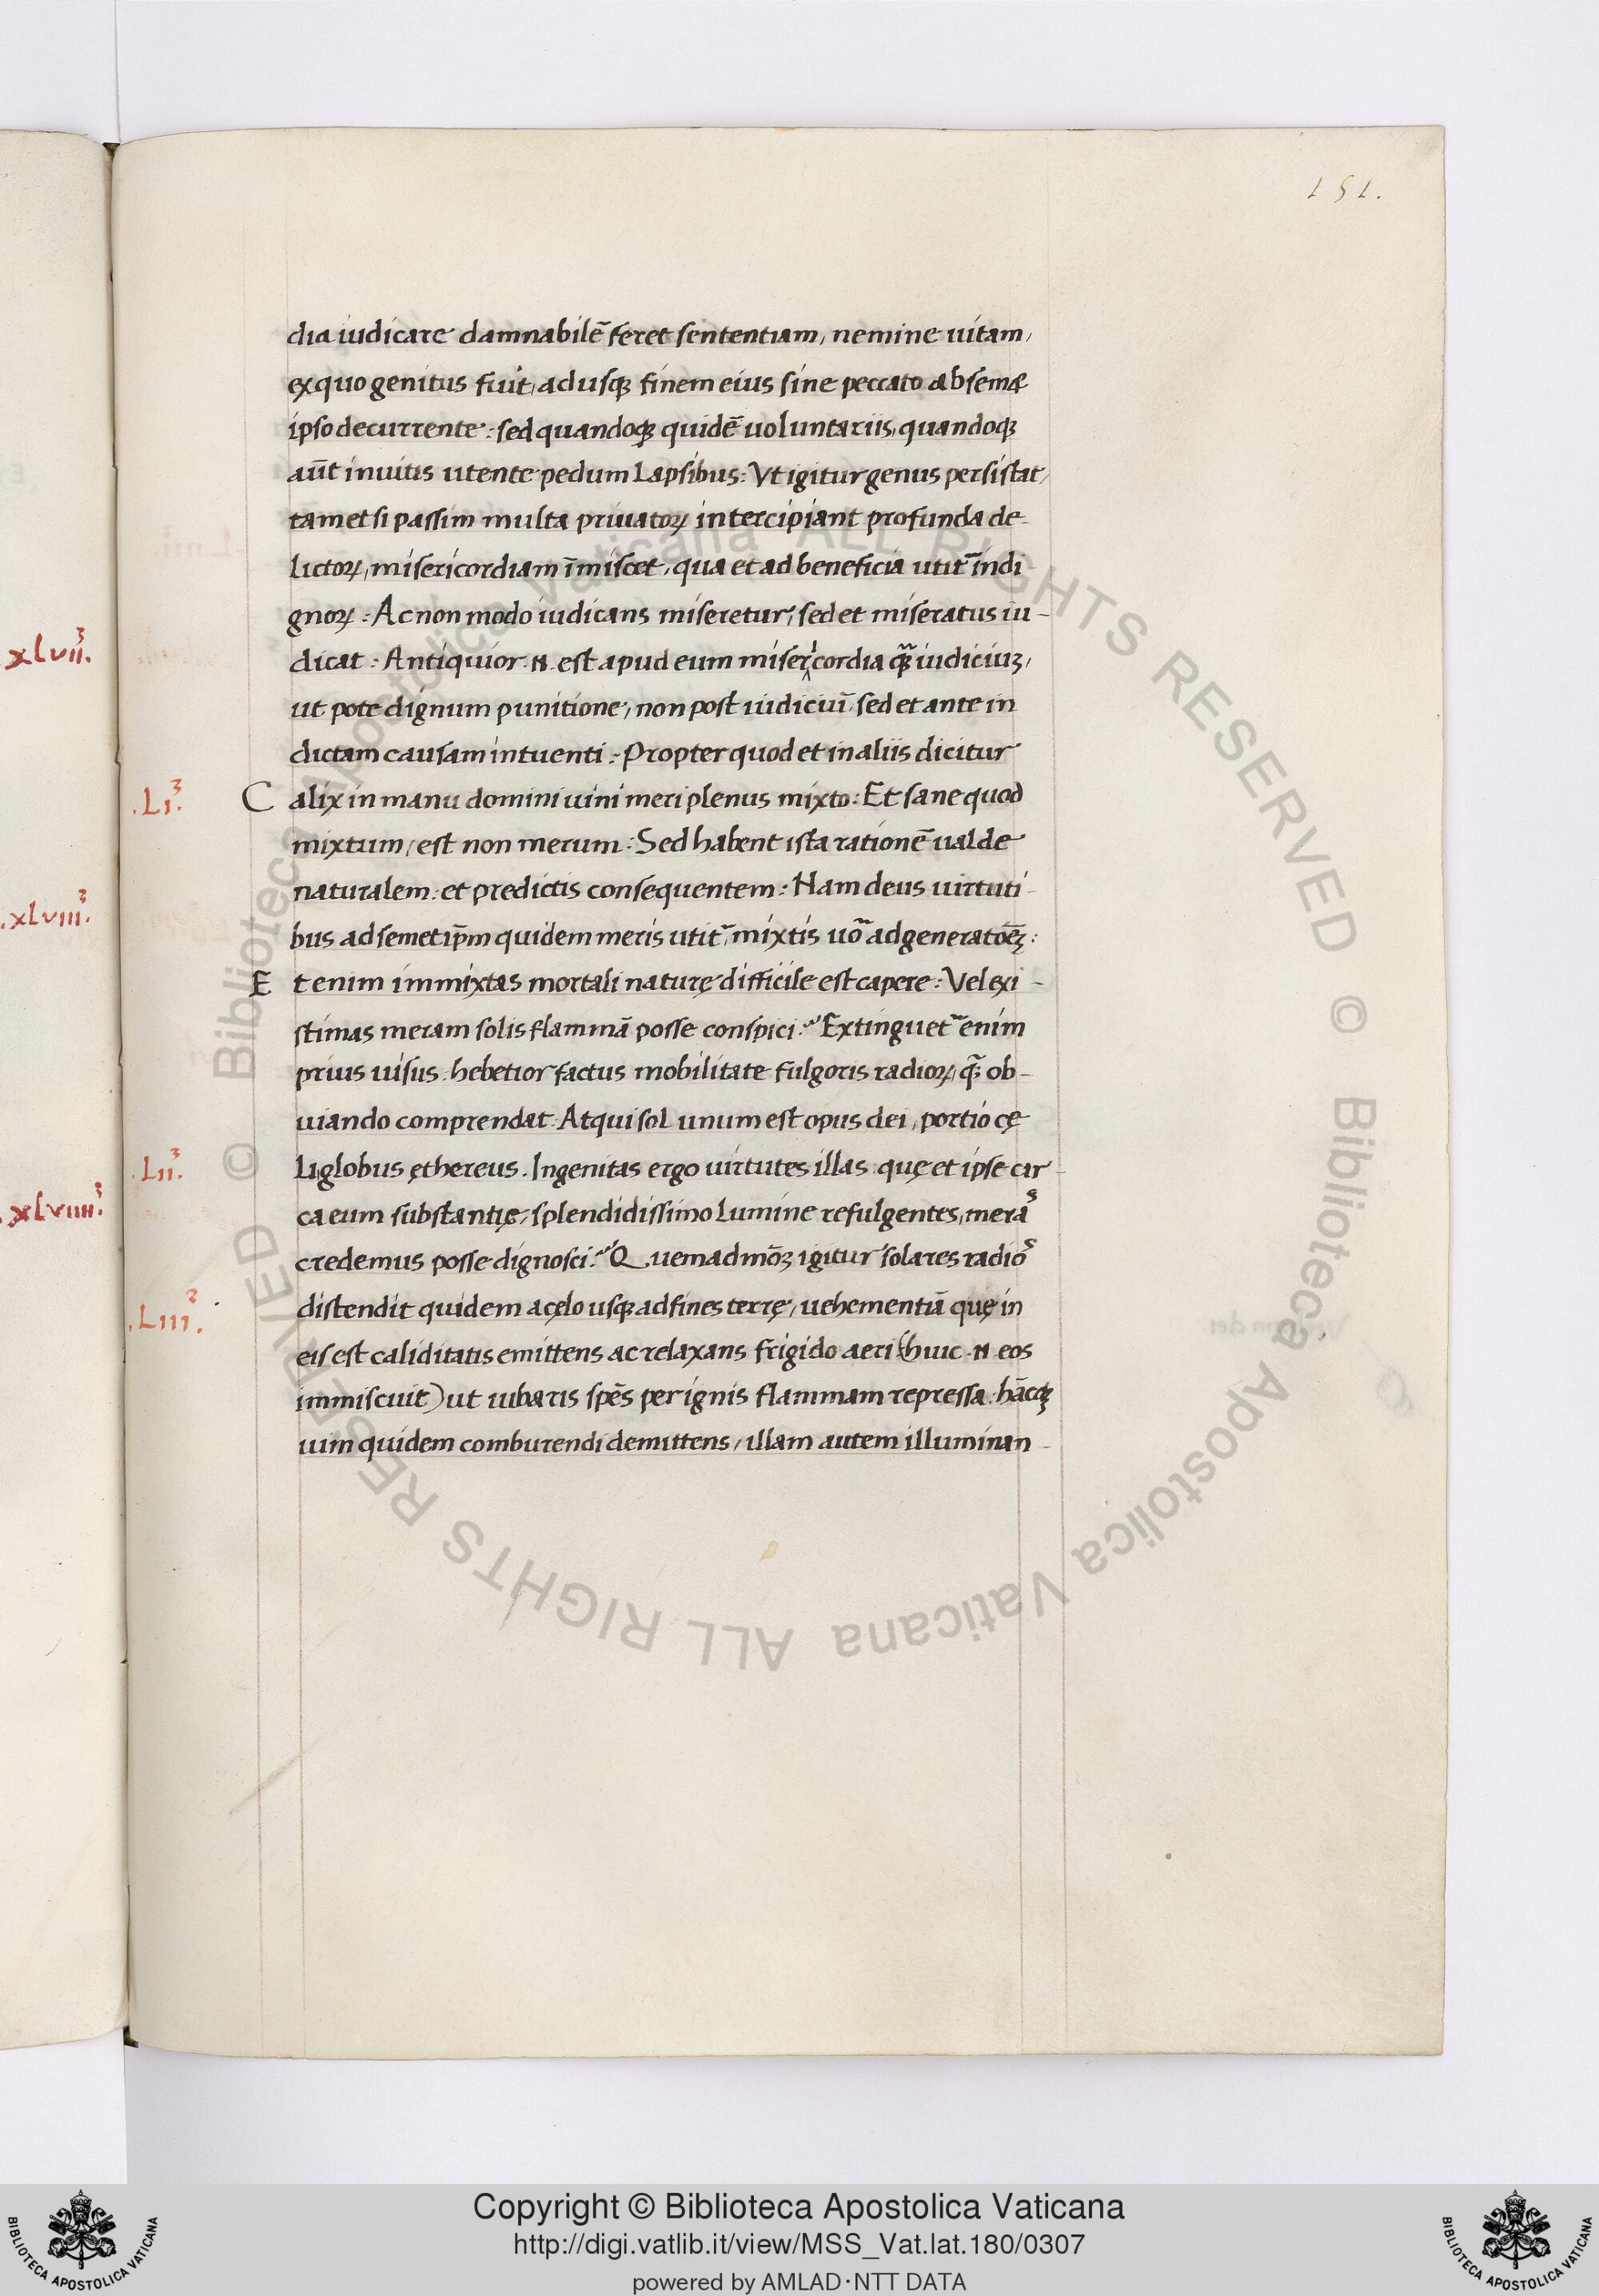 151.
dia iudicare damnabilē feret sententiam, nemine uitam,
ex quo genitus fuit, ad usqꝫ finem eius sine peccato ab semet
ipso decurrente: sed quandoqꝫ quidē uoluntariis, quandoqꝫ
aūt inuitis utente pedum lapsibus: Vt igitur genus persistat,
tametsi passim multa priuatoꝝ intercipiant profunda de-
lictoꝝ, misericordiam īmiscet, qua et ad beneficia utit᷑ indi
gnoꝝ: Ac non modo iudicans miseretur, sed et miseratus iu-
dicat: Antiquior .N. est apud eum misericordia qꝫ̃ iudiciuꝫ,
ut pote dignum punitione, non post iudiciū sed et ante in
dictam causam intuenti: Propter quod et in aliis dicitur
.Li.ꝫ Calix in manu domini uini meri plenus mixto: Et sane quod
mixtum, est non merum: Sed habent ista rationē ualde
naturalem: et predictis consequentem: Nam deus uirtuti-
bus ad semet ip̄m quidem meris utit᷑, mixtis uo᷑ ad generatōēꝫ:
Etenim immixtas mortali naturę difficile est capere: Vel exi-
stimas meram solis flammā posse conspici: Extinguet᷑ enim
prius uisus hebetior factus mobilitate fulgoris radioꝝ, qꝫ̃ ob-
uiando comprendat: Atqui sol unum est opus dei, portio cę
.Lii.ꝫ li globus ęthereus. Ingenitas ergo uirtutes illas quę et ipse cir-
ca eum substantię, splendidissimo lumine refulgentes, merās
credemus posse dignosci: Quemadmōꝫ igitur solares radios
.Liii.ꝫ distendit quidem a cęlo usqꝫ ad fines terrę, uehementiā quę in
eis est caliditatis emittens ac relaxans frigido aeri (huic .N. eos
immiscuit) ut iubaris spēs per ignis flammam repressa hācqꝫ
uim quidem comburendi demittens, illam autem illuminan-
xlvii.ꝫ
.xlviii.ꝫ
.xlviiii.ꝫ
© Biblioteca Apostolica Vaticana ALL RIGHTS RESERVED © Biblioteca Apostolica Vaticana ALL RIGHTS RESERVED
Copyright © Biblioteca Apostolica Vaticana
http://digi.vatlib.it/view/MSS_Vat.lat.180/0307
powered by AMLAD·NTT DATA
BIBLIOTECA APOSTOLICA VATICANA
BIBLIOTECA APOSTOLICA VATICANA